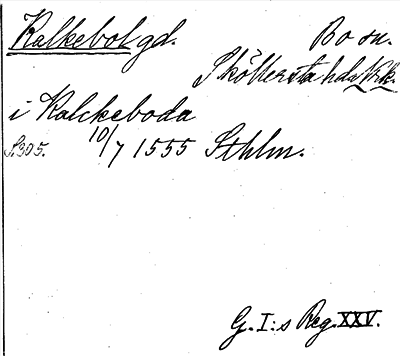 Kalkebol gd. Bo sn.
Sköllersta hd Nrk.
i Kalckeboda
S.305. 10/7 1555 Sthlm.
G. I:s Reg. XXV.